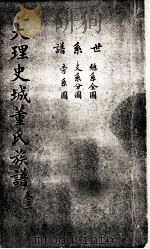 世系譜
總系全圖
支系分圖
系圖
大理史城董氏族譜